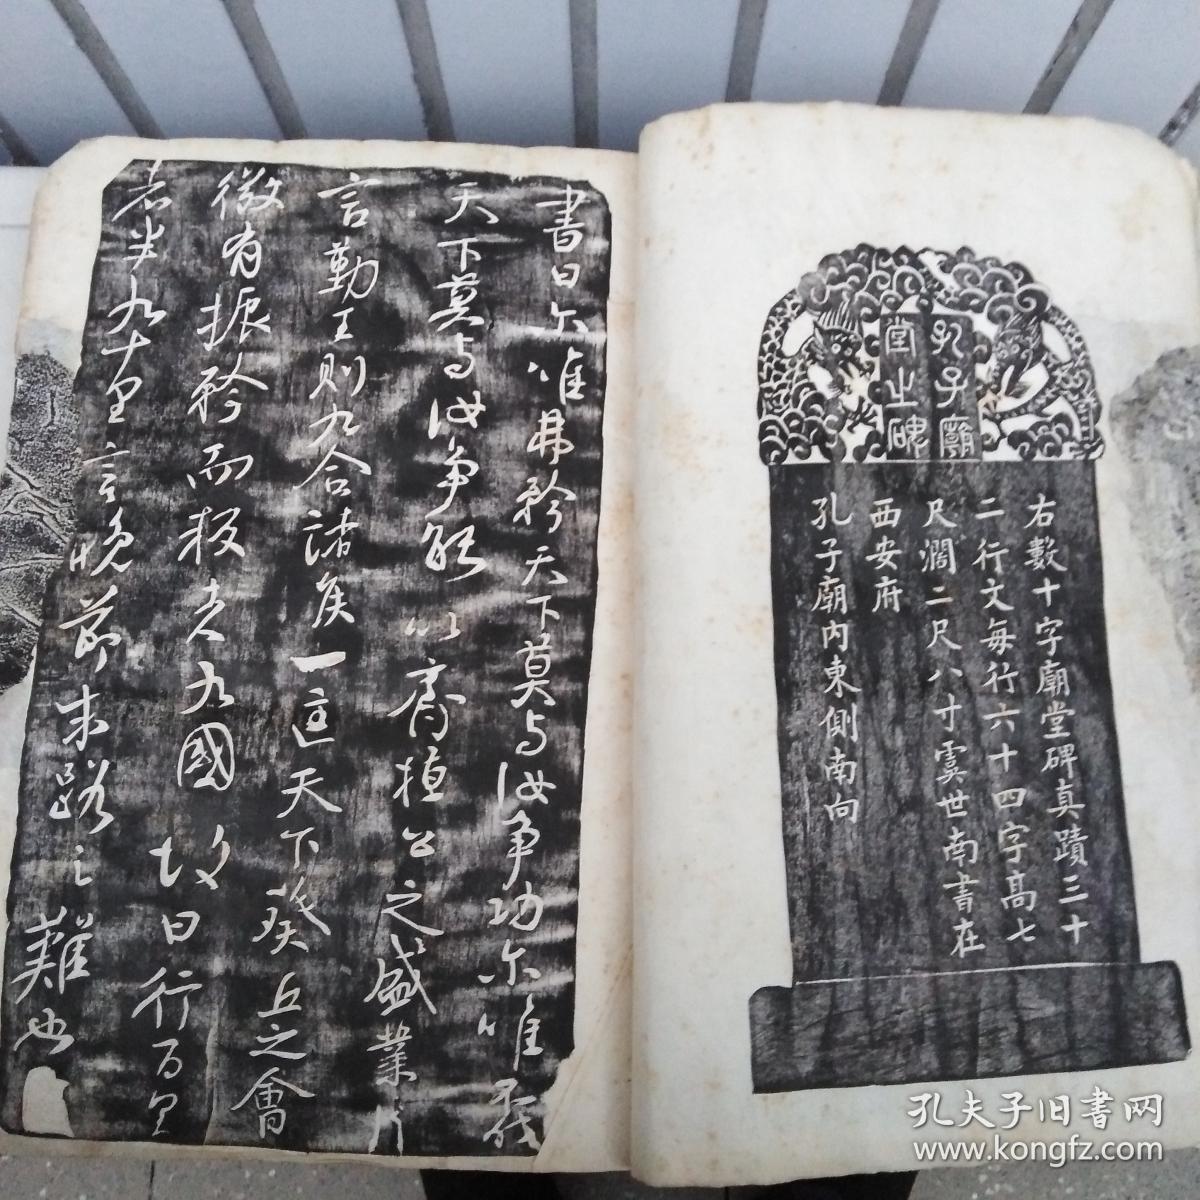 孔子廟
堂之碑
右數十字廟堂碑真蹟三十
二行文每行六十四字高七
尺濶二尺八寸虞世南書在
西安府
孔子廟內東側南向
書曰尓唯弗矜天下莫与汝争功尓唯弗伐
天下莫与汝争能以齊桓公之盛業片
言勤王則九合諸侯一匡天下葵丘之會
微有振矜而叛者九國故曰行百里
者半九十里言晚節末路之難也
孔夫子旧書网
www.kongfz.com